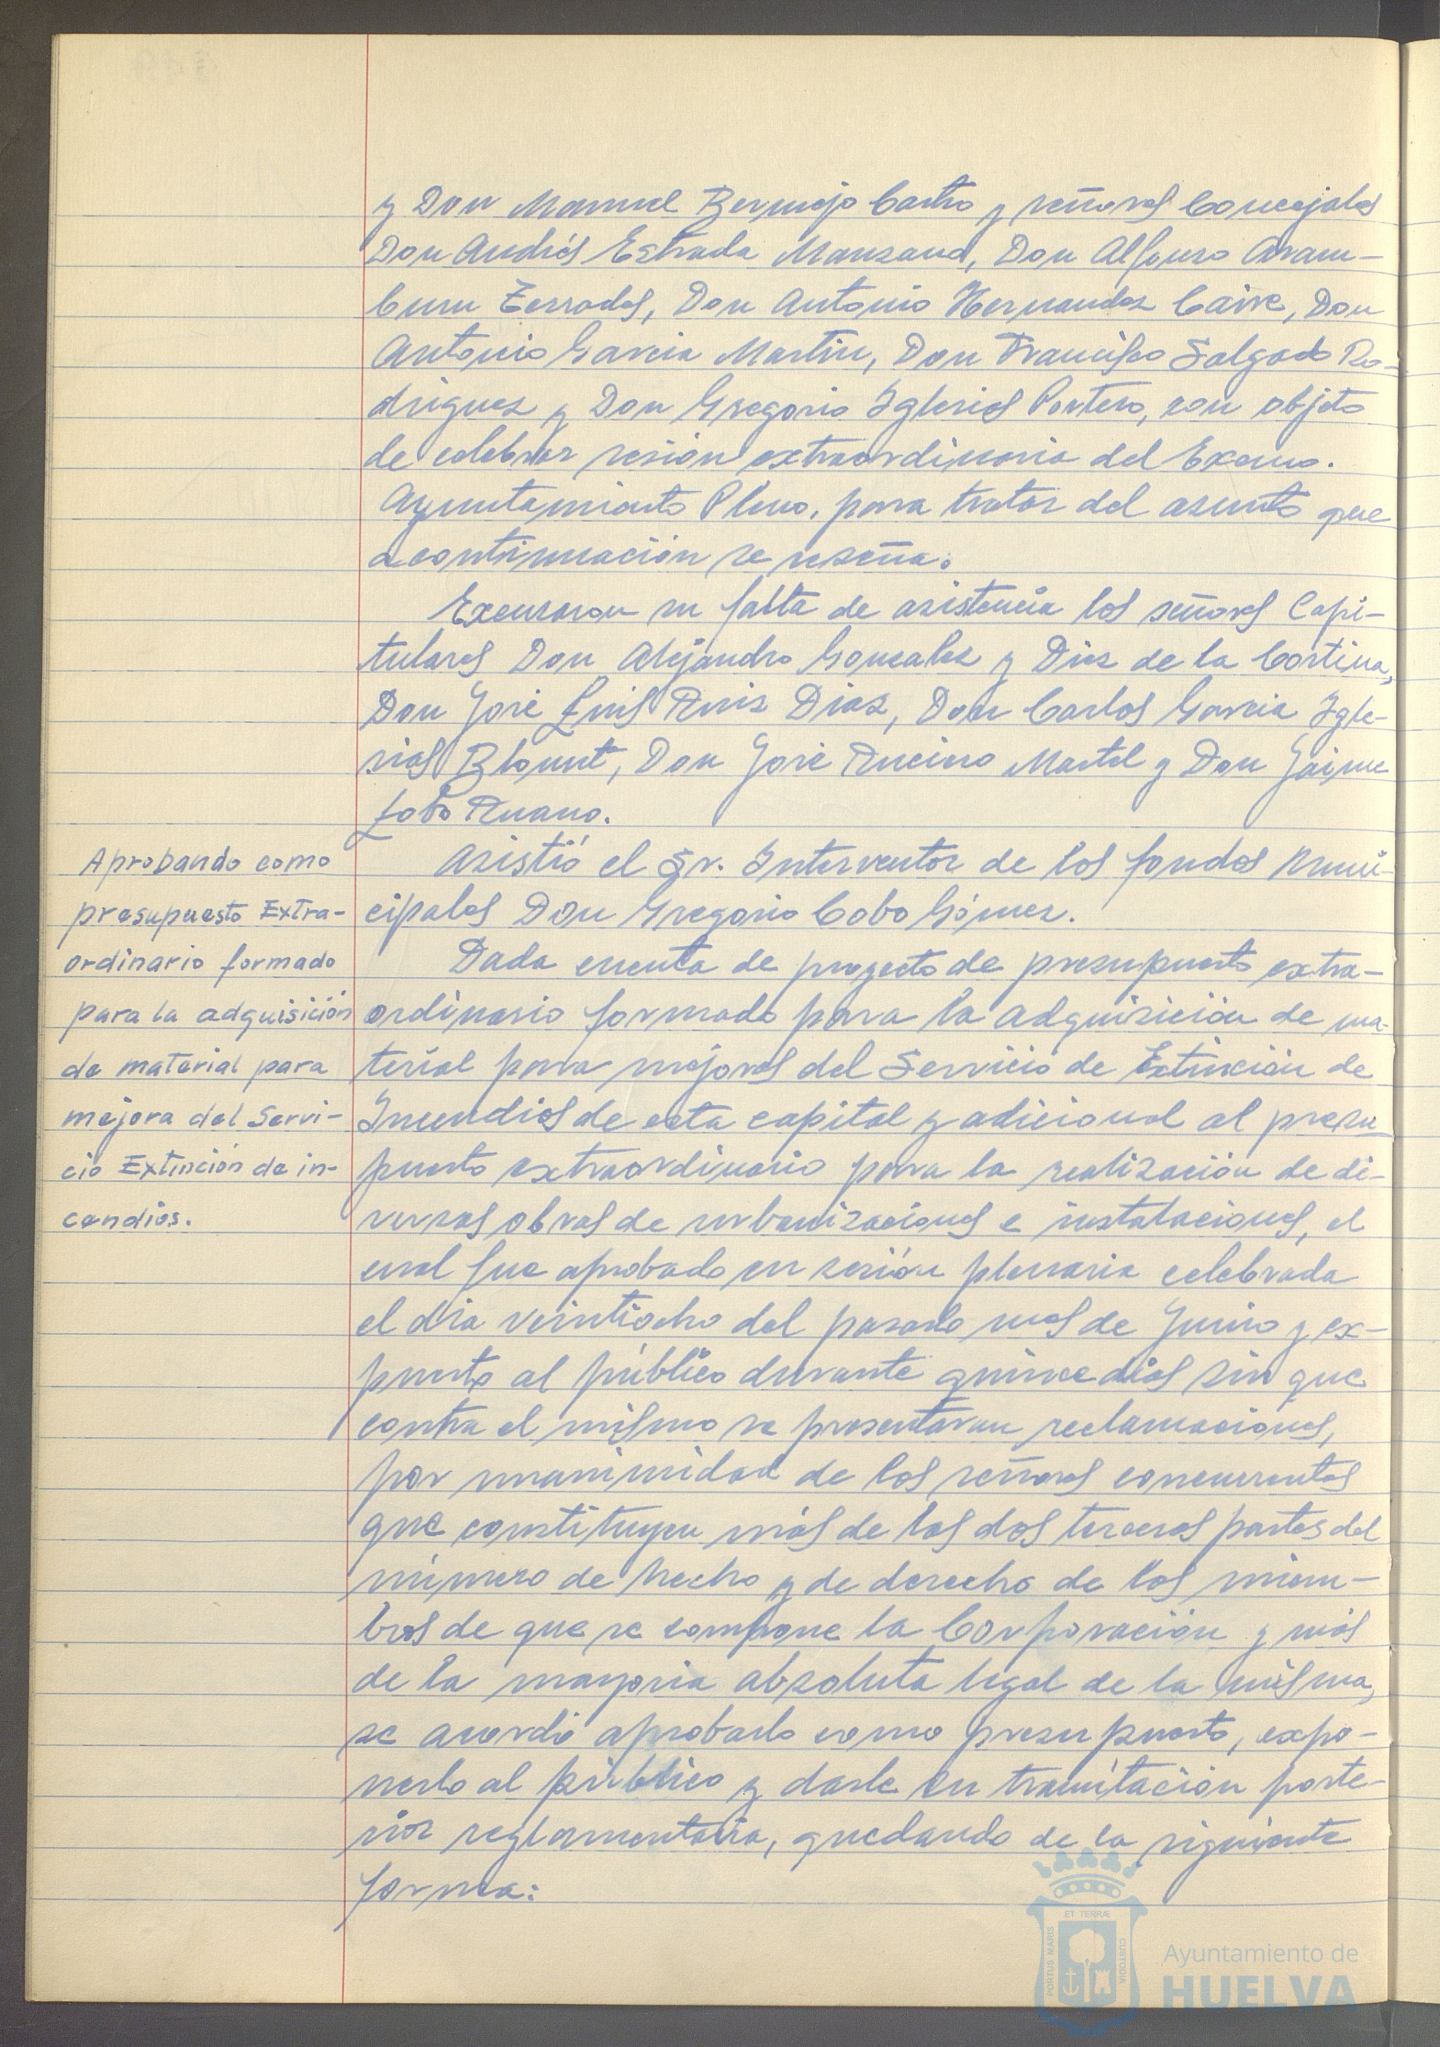 y Don Manuel Bermejo Castro y señores Concejales
Don Andrés Estrada Manzano, Don Alfonso Aram-
buru Terrades, Don Antonio Hernandez Caire, Don
Antonio Garcia Martin, Don Francisco Salgado Ro-
driguez y Don Gregorio Iglesias Portero, con objeto
de celebrar sesión extraordinaria del Excmo.
Ayuntamiento Pleno, para tratar del asunto que
a continuación se reseña.
Excusaron su falta de asistencia los señores Capi-
tulares Don Alejandro Gonzalez y Diez de la Cortina,
Don José Luis Ruiz Diaz, Don Carlos Garcia Igle-
sias Blount, Don José Ruciero Martel y Don Jaime
Lobo Ruano.
Asistió el Sr. Interventor de los fondos Muni-
cipales Don Gregorio Cobo Gómez.
Aprobando como
presupuesto Extra-
ordinario formado
para la adquisición
de material para
mejora del Servi-
cio Extinción de in-
cendios.
Dada cuenta de proyecto de presupuesto extra-
ordinario formado para la adquisición de ma-
terial para mejoras del Servicio de Extinción de
Incendios de esta capital y adicional al presu-
puesto extraordinario para la realización de di-
versas obras de urbanizaciones e instalaciones, el
cual fue aprobado en sesión plenaria celebrada
el dia veintiocho del pasado mes de Junio y ex-
puesto al público durante quince dias sin que
contra el mismo se presentaran reclamaciones,
por unanimidad de los señores concurrentes
que constituyen más de las dos terceras partes del
número de hecho y de derecho de los miem-
bros de que se compone la Corporación y más
de la mayoria absoluta legal de la misma,
se acordó aprobarlo como presupuesto, expo-
nerlo al público y darle su tramitación poste-
rior reglamentaria, quedando de la siguiente
forma:
ET TERRAE
PORTUS MARIS
CUSTODIA
Ayuntamiento de
HUELVA